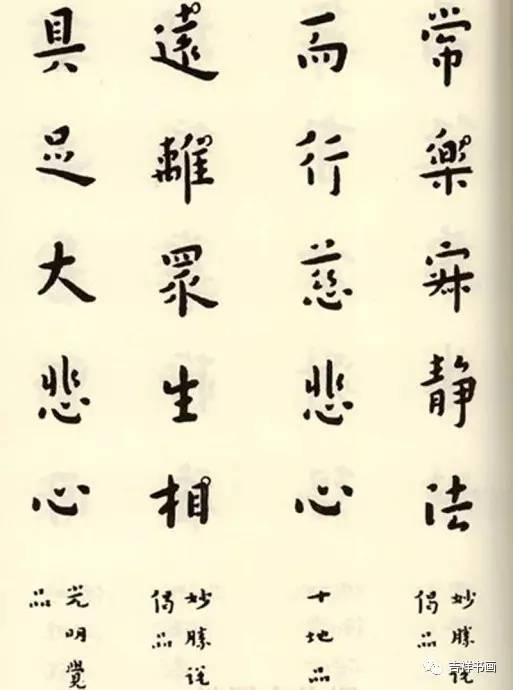 常樂寂静法
妙勝說
偈品
而行慈悲心
十地品
遠離眾生相
妙勝說
偈品
具足大悲心
光明覺
品
吉祥书画